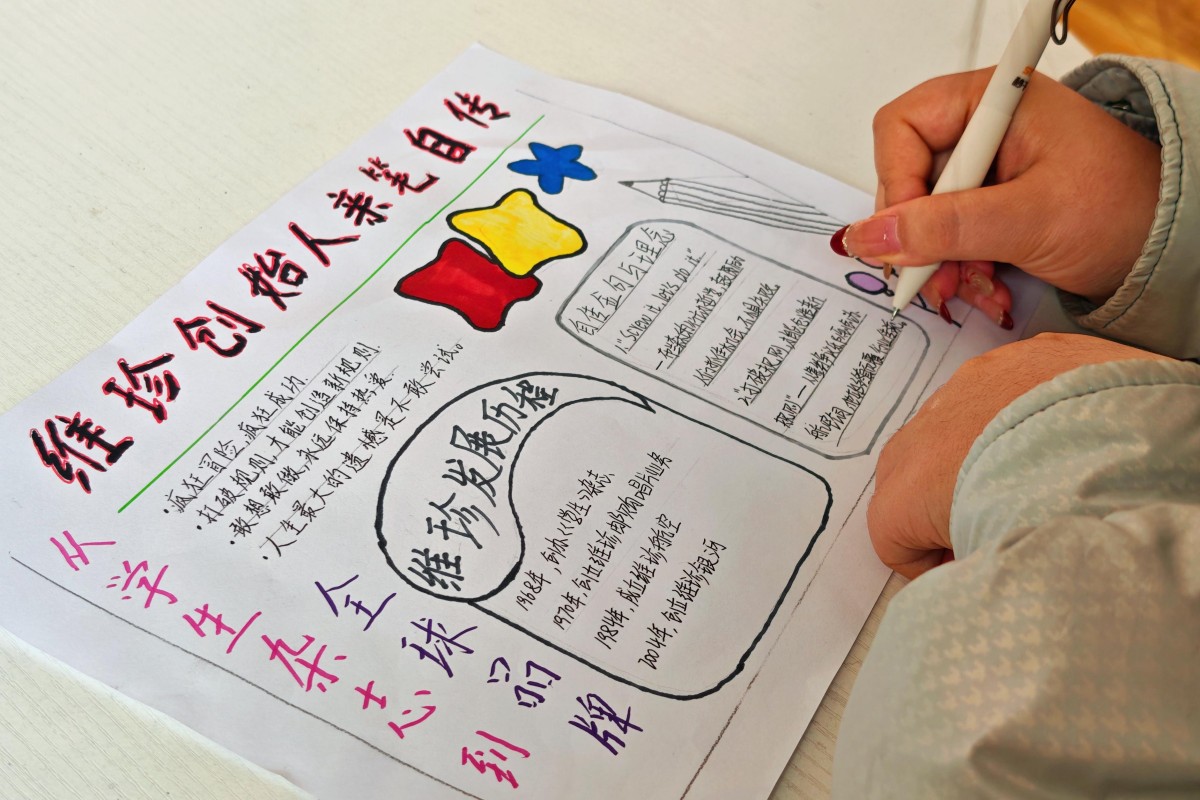 维珍创始人亲笔自传
·疯狂冒险,疯狂成功
·打破规则,才能创造新规则
·敢想敢做,永远保持热爱
·人生最大的遗憾是不敢尝试。
从学生杂志到
全球品牌
维珍发展历程
1968年,创办《学生》杂志
1970年,创立维珍邮购唱片业务
1984年,成立维珍航空
2004年,创立维珍银河
自传金句与理念
1."Screw it, let's do it"
2."打破规则,才能创造新
规则"